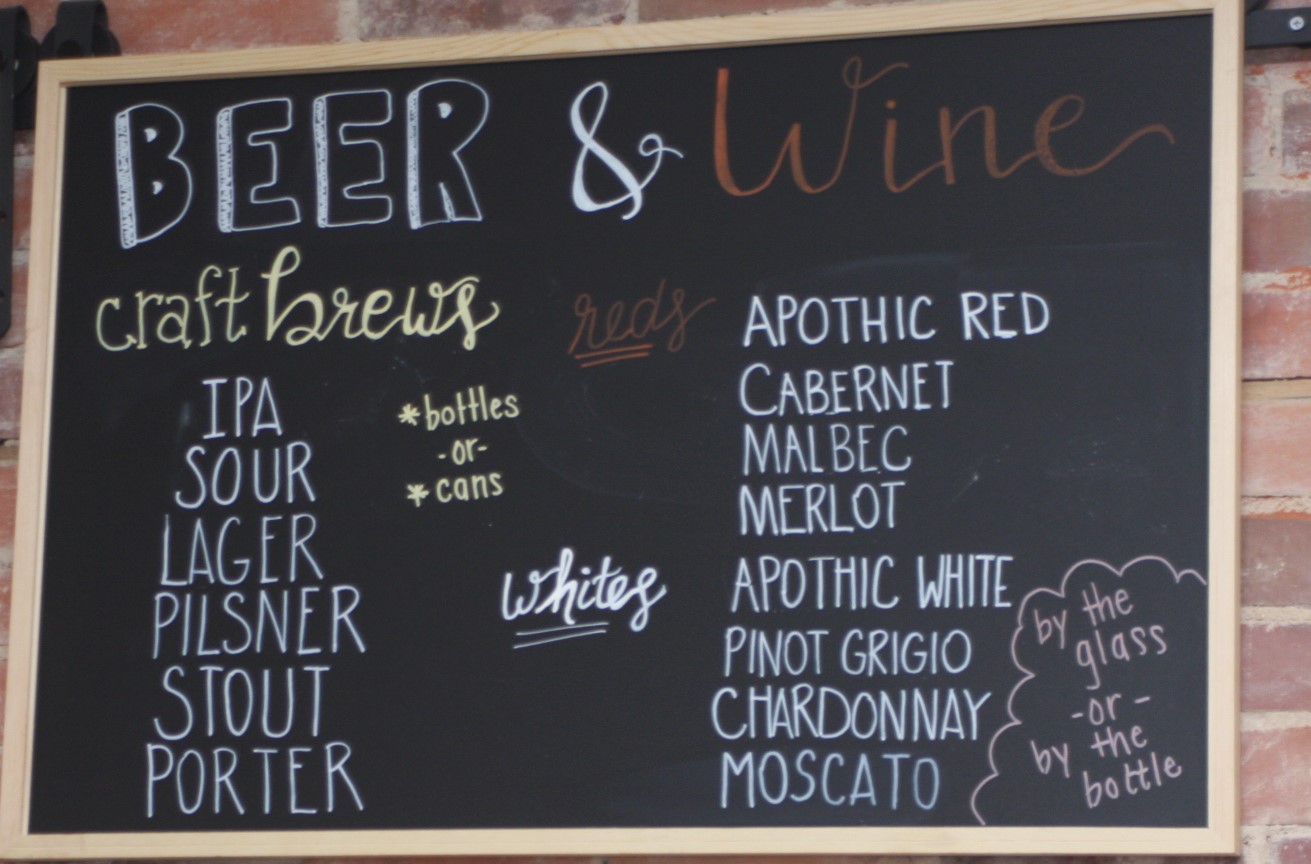 BEER & Wine
craft brews
IPA
SOUR
LAGER
PILSNER
STOUT
PORTER
*bottles
-or-
*cans
reds
APOTHIC RED
CABERNET
MALBEC
MERLOT
whites
APOTHIC WHITE
PINOT GRIGIO
CHARDONNAY
MOSCATO
by the
glass
-or-
by the
bottle